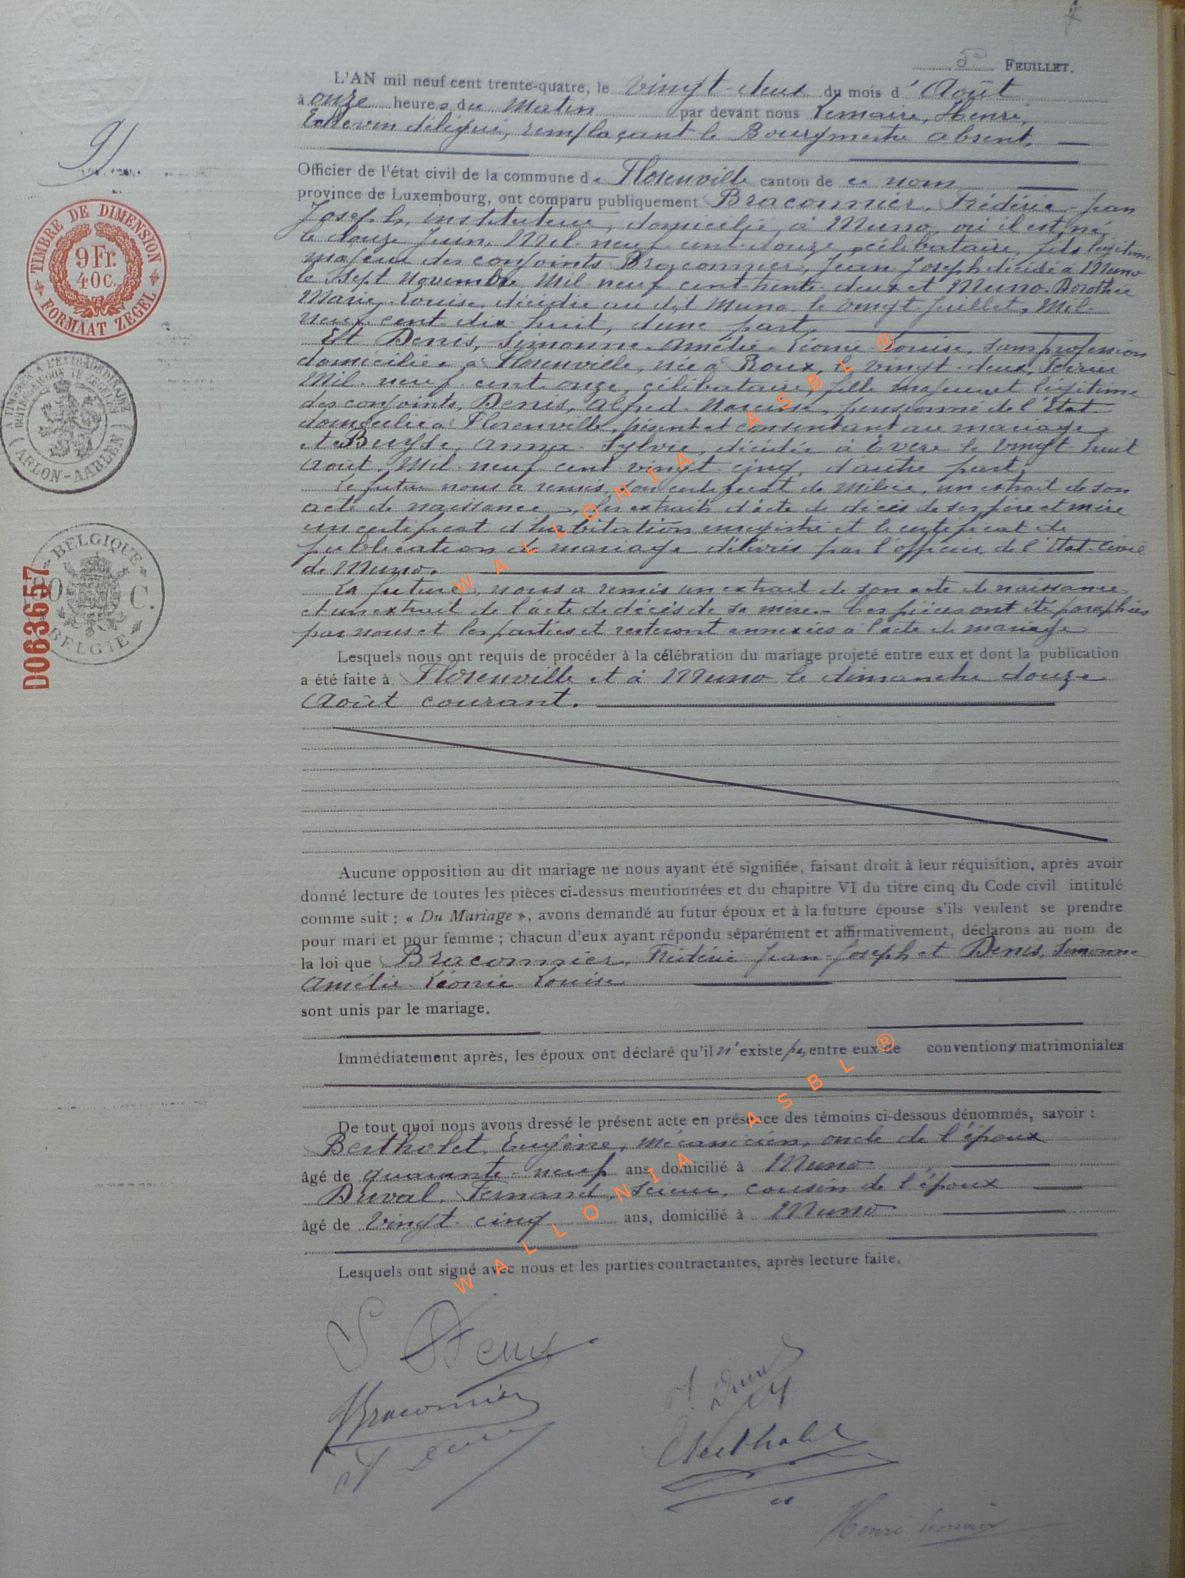 5e FEUILLET.
L'AN mil neuf cent trente-quatre, le vingt-deux du mois d'Août
à onze heures du Matin par devant nous Lemaire, Henri,
Echevin délégué, remplaçant le Bourgmestre absent.
9
Officier de l'état civil de la commune de Florenville canton de ce nom
province de Luxembourg, ont comparu publiquement Braconnier, Frédéric-Jean
Joseph, instituteur, domicilié à Muno, où il est né
le douze Juin Mil neuf cent douze, célibataire, fils légitime
majeur des conjoints Braconnier, Jean-Joseph décédé à Muno
le Sept Novembre Mil neuf cent trente-deux et Muno Dorothée
Marie-Louise, décédée au dit Muno le vingt Juillet, Mil
neuf cent dix huit, d'une part,
Et Denis, Simonne-Amélie-Léonie-Louise, sans profession
domiciliée à Florenville, née à Roux, le vingt-deux Février
Mil neuf cent onze, célibataire, fille majeure et légitime
des conjoints, Denis, Alfred-Narcisse, pensionné de l'Etat
domicilié à Florenville, présent et consentant au mariage,
et Buyse, Anna-Sylvie, décédée à Evere le vingt-huit
Août, Mil neuf cent vingt-cinq, d'autre part,
Le futur nous a remis, son certificat de milice, un extrait de son
acte de naissance, les extraits d'acte de décès de ses père et mère
un certificat d'habitation enregistré et le certificat de
publication de mariage délivrés par l'officier de l'Etat-Civil
de Muno.
La future, nous a remis un extrait de son acte de naissance
et un extrait de l'acte de décès de sa mère. Ces pièces ont été paraphées
par nous et les parties et resteront annexées à l'acte de mariage
Lesquels nous ont requis de procéder à la célébration du mariage projeté entre eux et dont la publication
a été faite à Florenville et à Muno le dimanche douze
Août courant.
Aucune opposition au dit mariage ne nous ayant été signifiée, faisant droit à leur réquisition, après avoir
donné lecture de toutes les pièces ci-dessus mentionnées et du chapitre VI du titre cinq du Code civil intitulé
comme suit : « Du Mariage », avons demandé au futur époux et à la future épouse s'ils veulent se prendre
pour mari et pour femme ; chacun d'eux ayant répondu séparément et affirmativement, déclarons au nom de
la loi que Braconnier, Frédéric Jean-Joseph et Denis, Simonne
Amélie-Léonie-Louise
sont unis par le mariage.
Immédiatement après, les époux ont déclaré qu'il n'existe pas entre eux de conventions matrimoniales
De tout quoi nous avons dressé le présent acte en présence des témoins ci-dessous dénommés, savoir :
Bertholet, Eugène, mécanicien, oncle de l'époux
âgé de quarante-neuf ans, domicilié à Muno
Duval, Fernand, scieur, cousin de l'époux
âgé de vingt-cinq ans, domicilié à Muno
Lesquels ont signé avec nous et les parties contractantes, après lecture faite.
S Denis
Braconnier
Bertholet
Henri Lemaire
TIMBRE DE DIMENSION
9 Fr.
40 C.
FORMAAT ZEGEL
ARLON-AARLEN
BELGIQUE
BELGIË
D063657
WALLONIA ASBL ®
WALLONIA ASBL ®